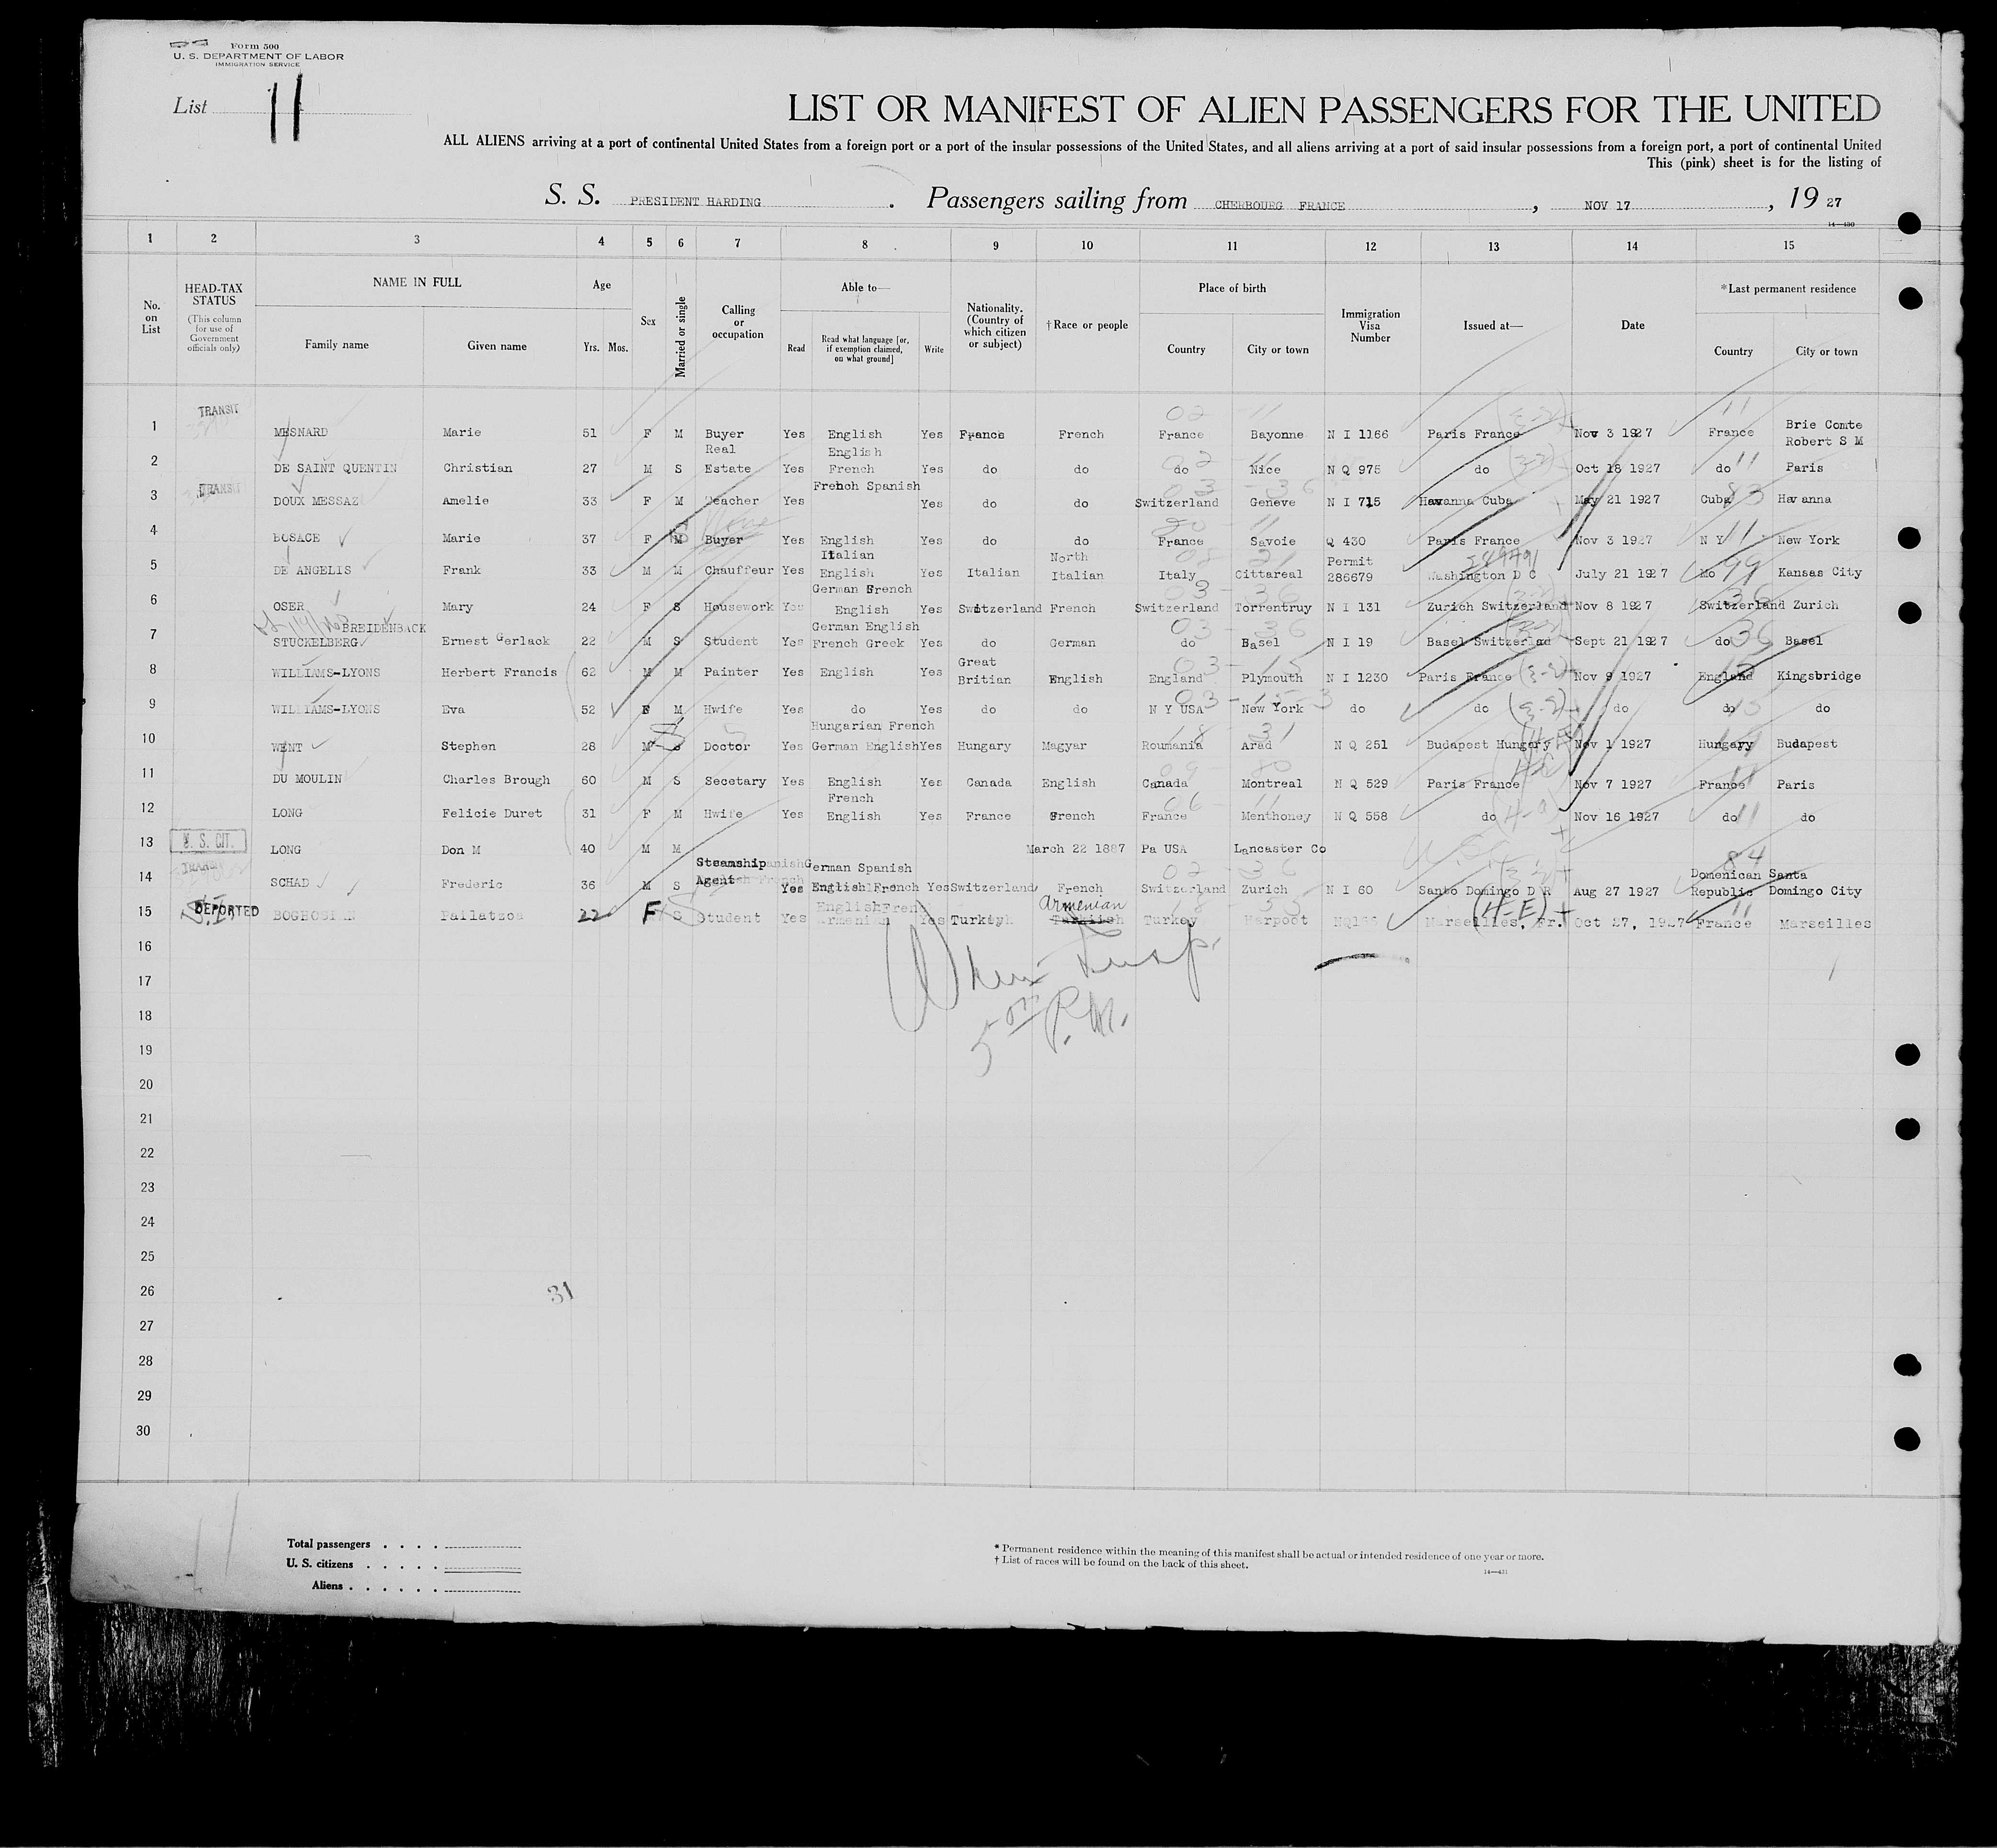 Form 500
U. S. DEPARTMENT OF LABOR
IMMIGRATION SERVICE
List 11
LIST OR MANIFEST OF ALIEN PASSENGERS FOR THE UNITED
ALL ALIENS arriving at a port of continental United States from a foreign port or a port of the insular possessions of the United States, and all aliens arriving at a port of said insular possessions from a foreign port, a port of continental United
This (pink) sheet is for the listing of
S. S. PRESIDENT HARDING . Passengers sailing from CHERBOURG FRANCE , NOV 17 , 19 27
14—430
1 2 3 4 5 6 7 8 9 10 11 12 13 14 15
No. on List
HEAD-TAX STATUS (This column for use of Government officials only)
NAME IN FULL
Family name Given name
Age
Yrs. Mos.
Sex
Married or single
Calling or occupation
Able to—
Read
Read what language [or, if exemption claimed, on what ground]
Write
Nationality. (Country of which citizen or subject)
†Race or people
Place of birth
Country City or town
Immigration Visa Number
Issued at—
Date
*Last permanent residence
Country City or town
1 TRANSIT MESNARD Marie 51 F M Buyer Yes English Yes France French France Bayonne N I 1166 Paris France Nov 3 1927 France Brie Comte Robert S M
2 DE SAINT QUENTIN Christian 27 M S Real Estate Yes English French Yes do do do Nice N Q 975 do Oct 18 1927 do Paris
3 TRANSIT DOUX MESSAZ Amelie 33 F M Teacher Yes French Spanish Yes do do Switzerland Geneve N I 715 Havanna Cuba May 21 1927 Cuba Havanna
4 BOSAGE Marie 37 F M Buyer Yes English Yes do do France Savoie Q 430 Paris France Nov 3 1927 N Y New York
5 DE ANGELIS Frank 33 M M Chauffeur Yes Italian English Yes Italian North Italian Italy Cittareal Permit 286679 Washington D C July 21 1927 Mo Kansas City
6 OSER Mary 24 F S Housework Yes German French English Yes Switzerland French Switzerland Torrentruy N I 131 Zurich Switzerland Nov 8 1927 Switzerland Zurich
7 BREIDENBACK STUCKELBERG Ernest Gerlack 22 M S Student Yes German English French Greek Yes do German do Basel N I 19 Basel Switzerlad Sept 21 1927 do Basel
8 WILLIAMS-LYONS Herbert Francis 62 M M Painter Yes English Yes Great Britian English England Plymouth N I 1230 Paris France Nov 9 1927 England Kingsbridge
9 WILLIAMS-LYONS Eva 52 F M Hwife Yes do Yes do do N Y USA New York do do do do do
10 WENT Stephen 28 M S Doctor Yes Hungarian French German English Yes Hungary Magyar Roumania Arad N Q 251 Budapest Hungary Nov 1 1927 Hungary Budapest
11 DU MOULIN Charles Brough 60 M S Secetary Yes English Yes Canada English Canada Montreal N Q 529 Paris France Nov 7 1927 France Paris
12 LONG Felicie Duret 31 F M Hwife Yes French English Yes France French France Menthoney N Q 558 do Nov 16 1927 do do
13 U. S. CIT. LONG Don M 40 M M March 22 1887 Pa USA Lancaster Co
14 TRANSIT SCHAD Frederic 36 M S Steamship Agent Yes German Spanish English French Yes Switzerland French Switzerland Zurich N I 60 Santo Domingo D R Aug 27 1927 Domenican Republic Santa Domingo City
15 DEPORTED S.I. BOGHOSIAN Pailatzoa 22 F S Student Yes English French Armenian Yes Turkey Armenian Turkish Turkey Harpoot Marseilles, Fr. Oct 27, 1927 France Marseilles
16
17
5 00 P. M.
18
19
20
21
22
23
24
25
26
31
27
28
29
30
Total passengers
U. S. citizens
Aliens
* Permanent residence within the meaning of this manifest shall be actual or intended residence of one year or more.
† List of races will be found on the back of this sheet.
14—431